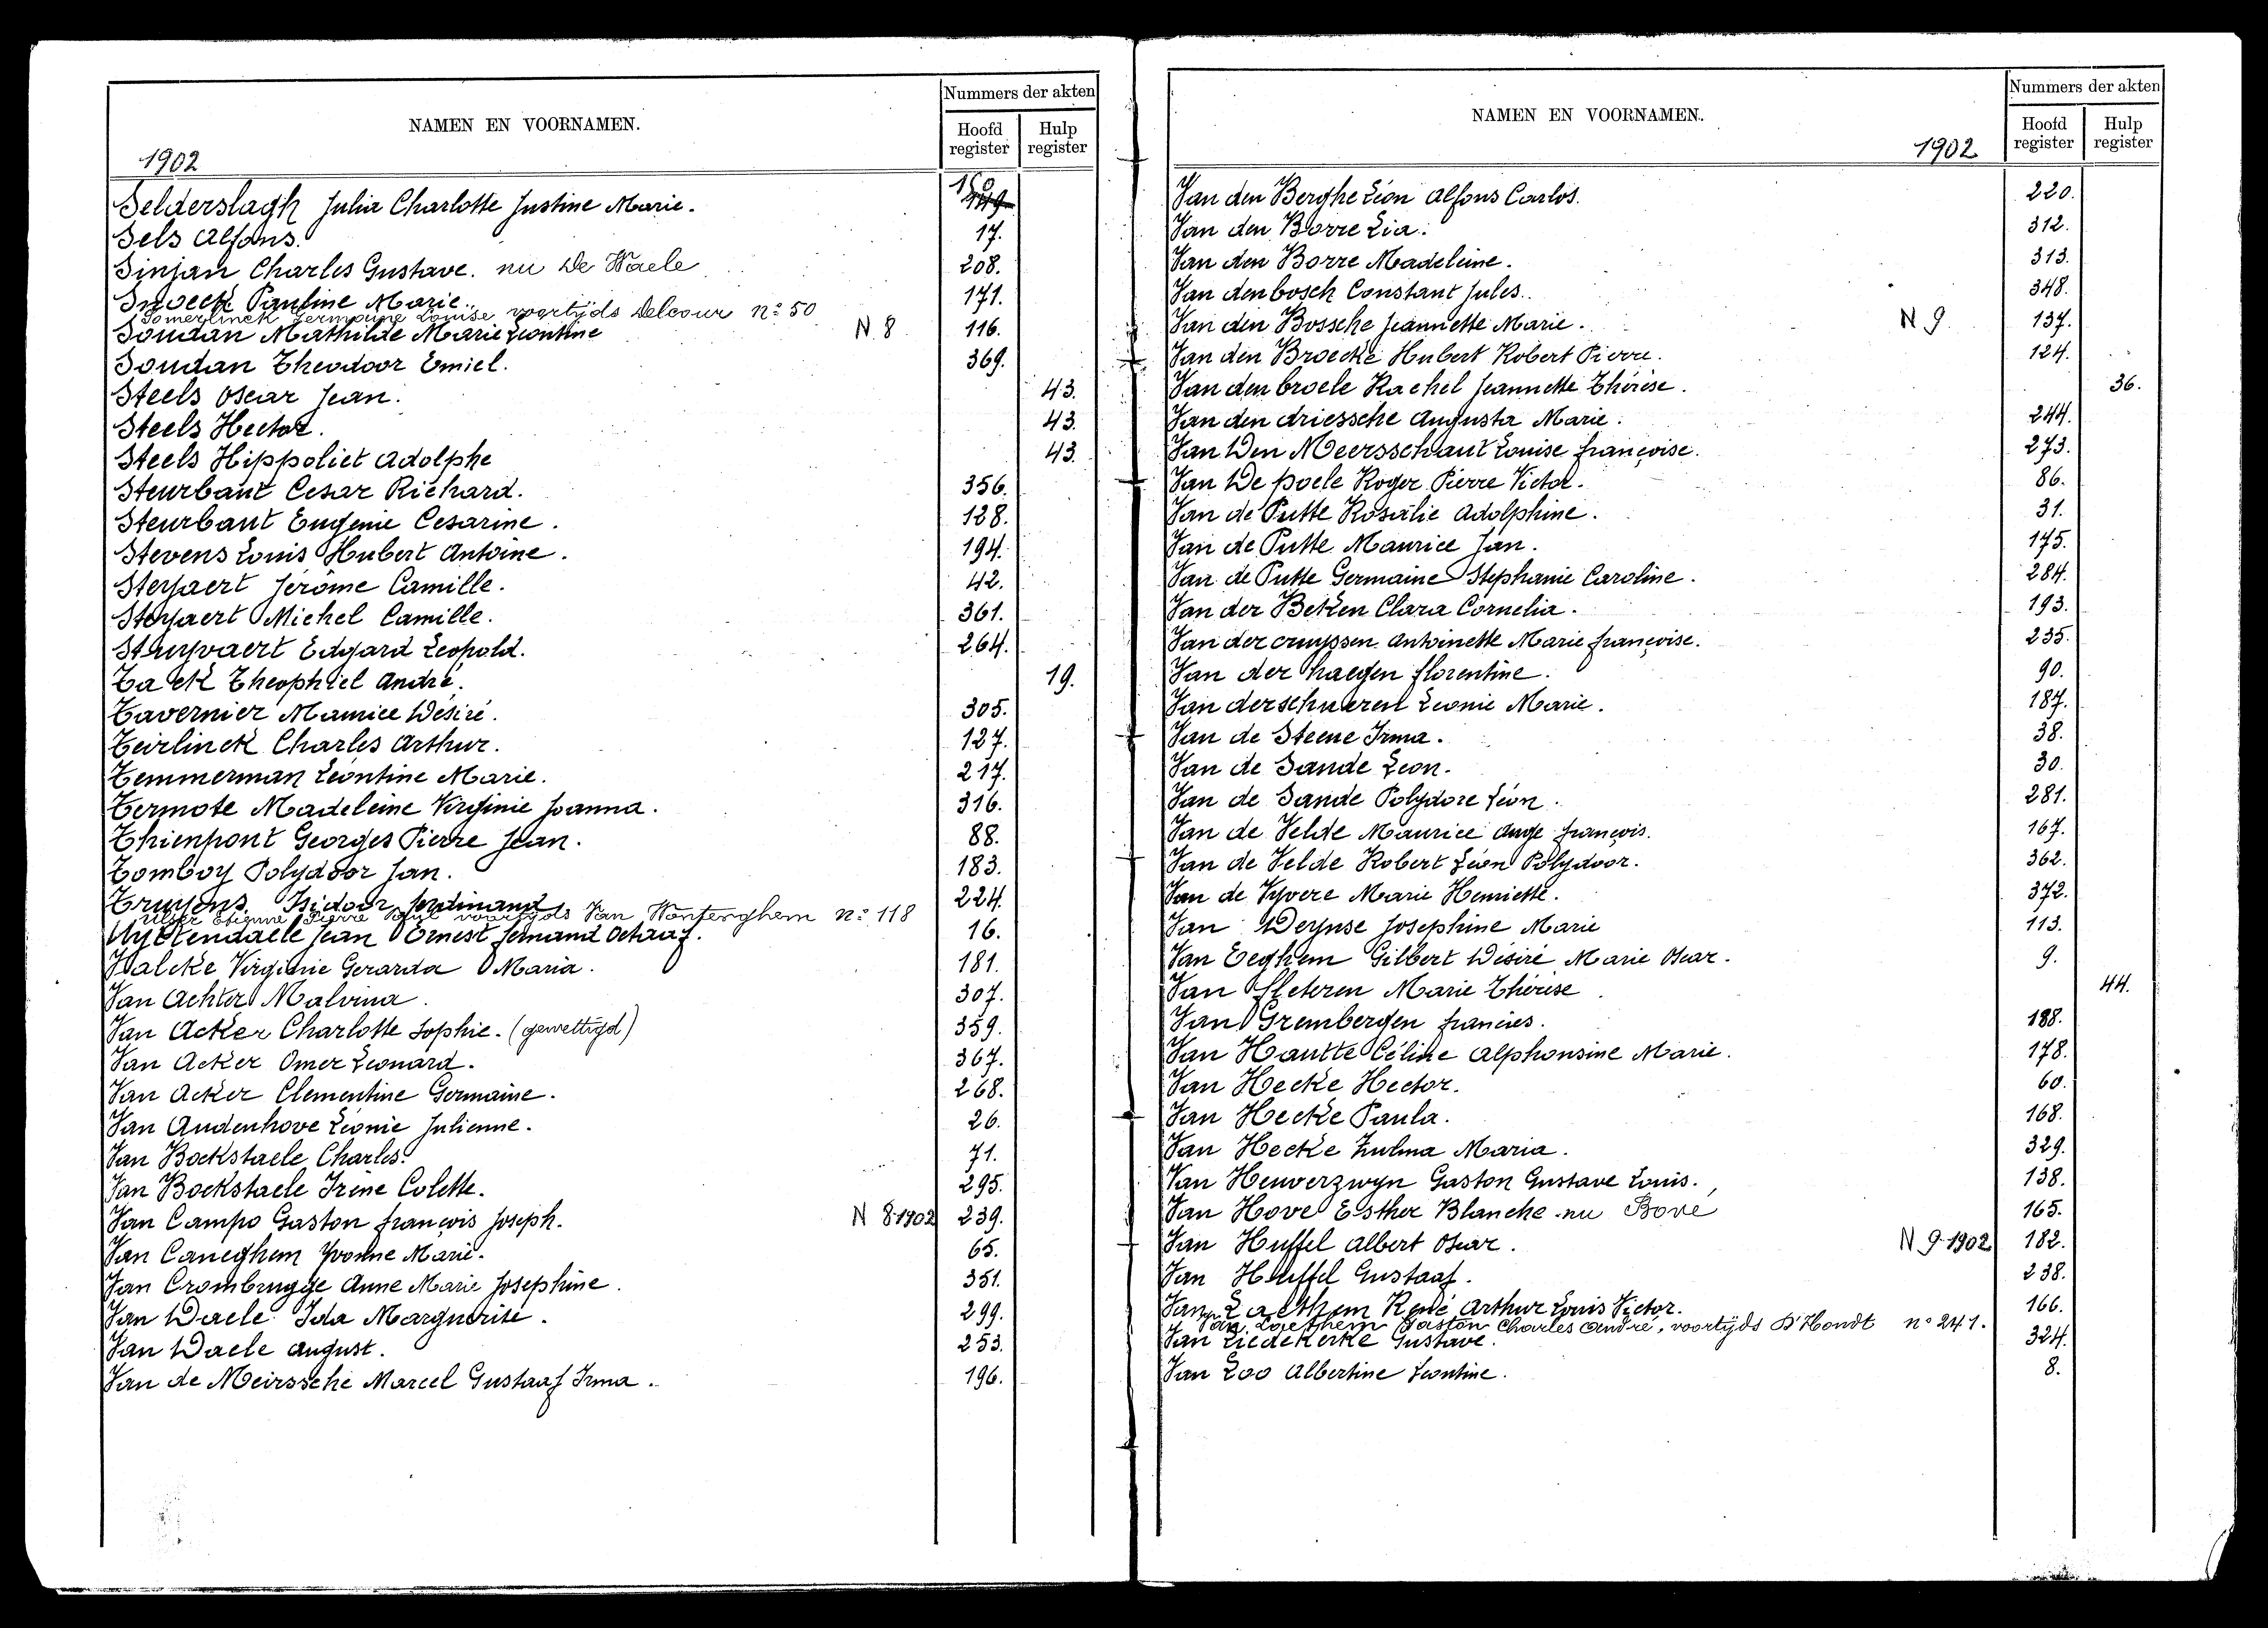 NAMEN EN VOORNAMEN.
Nummers der akten
Hoofd register
Hulp register
1902
Selderslagh Julia Charlotte Justine Marie. 150 149
Sels Alfons. 17.
Sinjan Charles Gustave. nu De Waele 208.
Snoeck Pauline Marie. 171.
Somerlinck Germaine Louise voortijds Delcour nº 50
Soudan Mathilde Marie Leontine N 8 116.
Soudan Theodoor Emiel. 369.
Steels Oscar Jean. 43.
Steels Hector. 43.
Steels Hippoliet Adolphe 43.
Steurbaut Cesar Richard. 356.
Steurbaut Eugenie Cesarine. 128.
Stevens Louis Hubert Antoine. 194.
Steyaert Jerôme Camille. 42.
Steyaert Michel Camille. 361.
Stuyvaert Edgard Leopold. 264.
Tack Theophiel André. 19.
Tavernier Maurice Désiré. 305.
Teirlinck Charles Arthur. 127.
Temmerman Léontine Marie. 217.
Termote Madeleine Virginie Joanna. 316.
Thienpont Georges Pierre Jean. 88.
Tomboy Polydoor Jan. 183.
Truyens Isidoor Ferdinand 224.
Etienne Pierre Paul voortijds Van Wonterghem nº 118
Uyttendaele Jean Ernest Fernand Octaaf. 16.
Valcke Virginie Gerarda Maria. 181.
Van Achter Malvina. 307.
Van Acker Charlotte Sophie. (gewettigd) 359.
Van Acker Omer Leonard. 367.
Van Acker Clementine Germaine. 268.
Van Audenhove Léonie Julienne. 26.
Van Bockstaele Charles. 71.
Van Bockstaele Irène Colette. 295.
Van Campo Gaston François Joseph. N 8-1902 239.
Van Caneghem Yvonne Marie. 65.
Van Crombrugge Anne Marie Josephine. 351.
Van Daele Ida Marguerite. 299.
Van Daele August. 253.
Van de Meirssche Marcel Gustaaf Irma. 196.
NAMEN EN VOORNAMEN.
Nummers der akten
Hoofd register
Hulp register
1902
Van den Berghe Léon Alfons Carlos. 220.
Van den Borre Lia. 312.
Van den Borre Madeleine. 313.
Van den bosch Constant Jules. 348.
Van den Bossche Jeannette Marie. N 9 137.
Van den Broecke Hubert Robert Pierre. 124.
Van den broele Rachel Jeannette Thérèse. 36.
Van den driessche Augusta Marie. 244.
Van Den Meersschaut Louise Françoise. 273.
Van De poele Roger Pierre Victor. 86.
Van de Putte Rosalie Adolphine. 31.
Van de Putte Maurice Jan. 175.
Van de Putte Germaine Stephanie Caroline. 284.
Van der Beken Clara Cornelia. 193.
Van der cruyssen Antoinette Marie Françoise. 235.
Van der haegen Florentine. 90.
Van derschueren Leonie Marie. 187.
Van de Steene Irma. 38.
Van de Sande Leon. 30.
Van de Sande Polydore Léon. 281.
Van de Velde Maurice Ange François. 167.
Van de Velde Robert Léon Polydoor. 362.
Van de Vyvere Marie Henriette. 372.
Van Deynse Josephine Marie 113.
Van Eeghem Gilbert Désiré Marie Oscar. 9.
Van Fleteren Marie Thérèse 44.
Van Grembergen Francies. 188.
Van Hautte Céline Alphonsine Marie. 178.
Van Hecke Hector. 60.
Van Hecke Paula. 168.
Van Hecke Zulma Maria. 329.
Van Heuverzwyn Gaston Gustave Louis. 138.
Van Hove Esther Blanche nu Bové 165.
Van Huffel Albert Oscar. N 9-1902 182.
Van Huffel Gustaaf. 238.
Van Laethem René Arthur Louis Victor. 166.
Van Laethem Gaston Charles André, voortijds D'Hondt nº 241.
Van Liedekerke Gustave. 324.
Van Loo Albertine Leontine. 8.